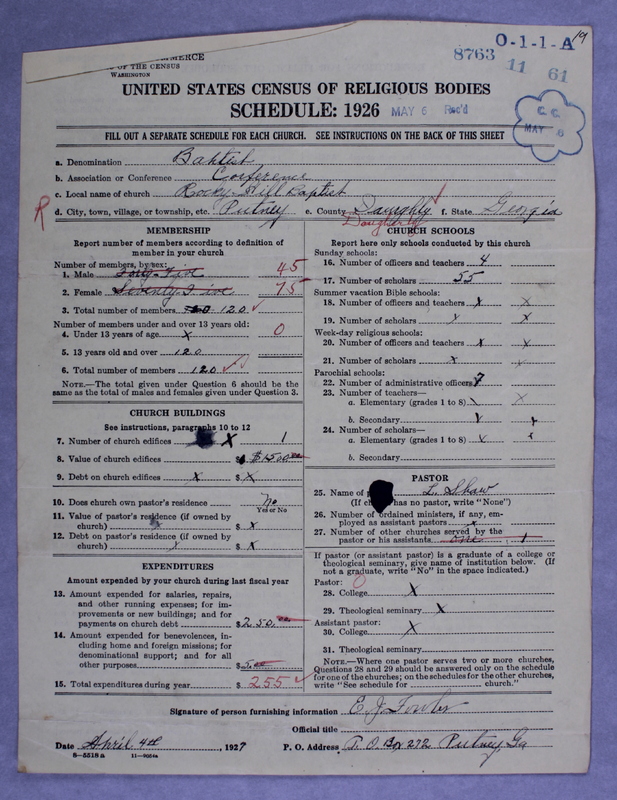 O-1-1-A 19
8763 11 61
MERCE
OF THE CENSUS
WASHINGTON
UNITED STATES CENSUS OF RELIGIOUS BODIES
SCHEDULE: 1926 MAY 6 Rec'd
C. C. MAY 6
FILL OUT A SEPARATE SCHEDULE FOR EACH CHURCH. SEE INSTRUCTIONS ON THE BACK OF THIS SHEET
a. Denomination Baptist
b. Association or Conference Conference
c. Local name of church Rocky Hill Baptist
R d. City, town, village, or township, etc. Putney e. County Daughly Dougherty f. State Georgia
MEMBERSHIP
Report number of members according to definition of
member in your church
Number of members, by sex:
1. Male Forty-Five 45
2. Female Seventy-Five 75
3. Total number of members 120
Number of members under and over 13 years old:
4. Under 13 years of age x 0
5. 13 years old and over 120
6. Total number of members 120
NOTE.—The total given under Question 6 should be the
same as the total of males and females given under Question 3.
CHURCH BUILDINGS
See instructions, paragraphs 10 to 12
7. Number of church edifices X 1
8. Value of church edifices $ $1500.00
9. Debt on church edifices x $ x
10. Does church own pastor's residence No
Yes or No
11. Value of pastor's residence (if owned by
church) $ x
12. Debt on pastor's residence (if owned by
church) $ x
EXPENDITURES
Amount expended by your church during last fiscal year
13. Amount expended for salaries, repairs,
and other running expenses; for im-
provements or new buildings; and for
payments on church debt $ 250.00
14. Amount expended for benevolences, in-
cluding home and foreign missions; for
denominational support; and for all
other purposes $ 5.00
15. Total expenditures during year $ 255
CHURCH SCHOOLS
Report here only schools conducted by this church
Sunday schools:
16. Number of officers and teachers 4
17. Number of scholars 55
Summer vacation Bible schools:
18. Number of officers and teachers x x
19. Number of scholars x x
Week-day religious schools:
20. Number of officers and teachers x x
21. Number of scholars x x
Parochial schools:
22. Number of administrative officers
23. Number of teachers—
a. Elementary (grades 1 to 8) x x
b. Secondary x x
24. Number of scholars—
a. Elementary (grades 1 to 8) x x
b. Secondary
PASTOR
25. Name of L. Shaw
(If ch has no pastor, write "None")
26. Number of ordained ministers, if any, em-
ployed as assistant pastors x
27. Number of other churches served by the
pastor or his assistants one 1
If pastor (or assistant pastor) is a graduate of a college or
theological seminary, give name of institution below. (If
not a graduate, write "No" in the space indicated.)
Pastor: 0
28. College x
29. Theological seminary x
Assistant pastor:
30. College x
31. Theological seminary
NOTE.—Where one pastor serves two or more churches,
Questions 28 and 29 should be answered only on the schedule
for one of the churches; on the schedules for the other churches,
write "See schedule for church."
Signature of person furnishing information E. J. Fowler
Official title
Date April 4th, 1927 P. O. Address P. O. Box 272 Putney, Ga
8-5518a 11-9054a